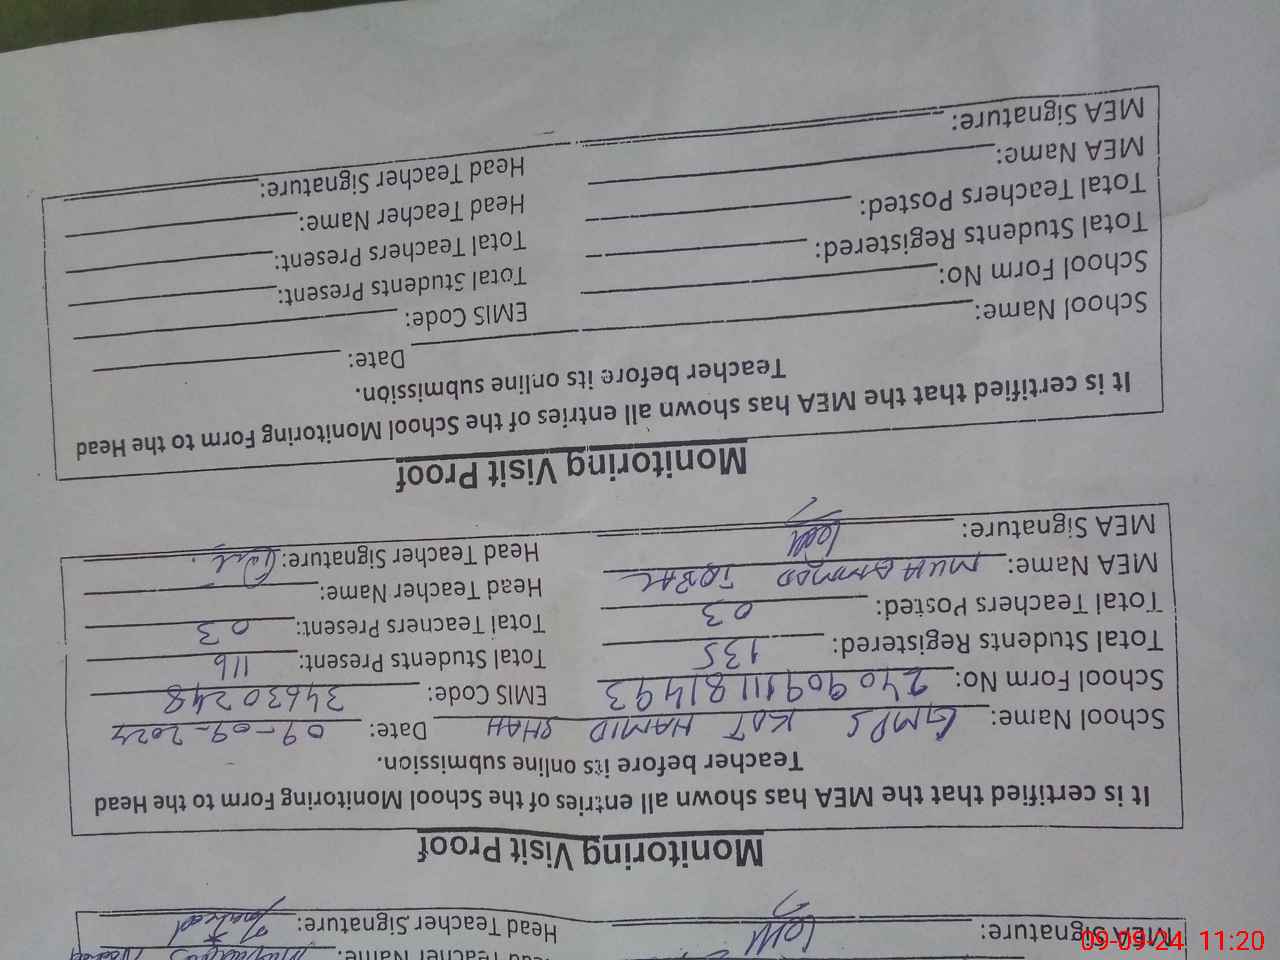 Teacher Name:
MEA Signature: Head Teacher Signature:
Monitoring Visit Proof
It is certified that the MEA has shown all entries of the School Monitoring Form to the Head
Teacher before its online submission.
School Name: GMPS KOT HAMID SHAH Date: 09-09-2024
School Form No: 24090911181493 EMIS Code: 34630248
Total Students Registered: 135 Total Students Present: 116
Total Teachers Posted: 03 Total Teachers Present: 03
MEA Name: MUHAMMAD IQBAL Head Teacher Name:
MEA Signature: Head Teacher Signature:
Monitoring Visit Proof
It is certified that the MEA has shown all entries of the School Monitoring Form to the Head
Teacher before its online submission.
School Name: Date:
School Form No: EMIS Code:
Total Students Registered: Total Students Present:
Total Teachers Posted: Total Teachers Present:
MEA Name: Head Teacher Name:
MEA Signature: Head Teacher Signature:
09-09-24 11:20